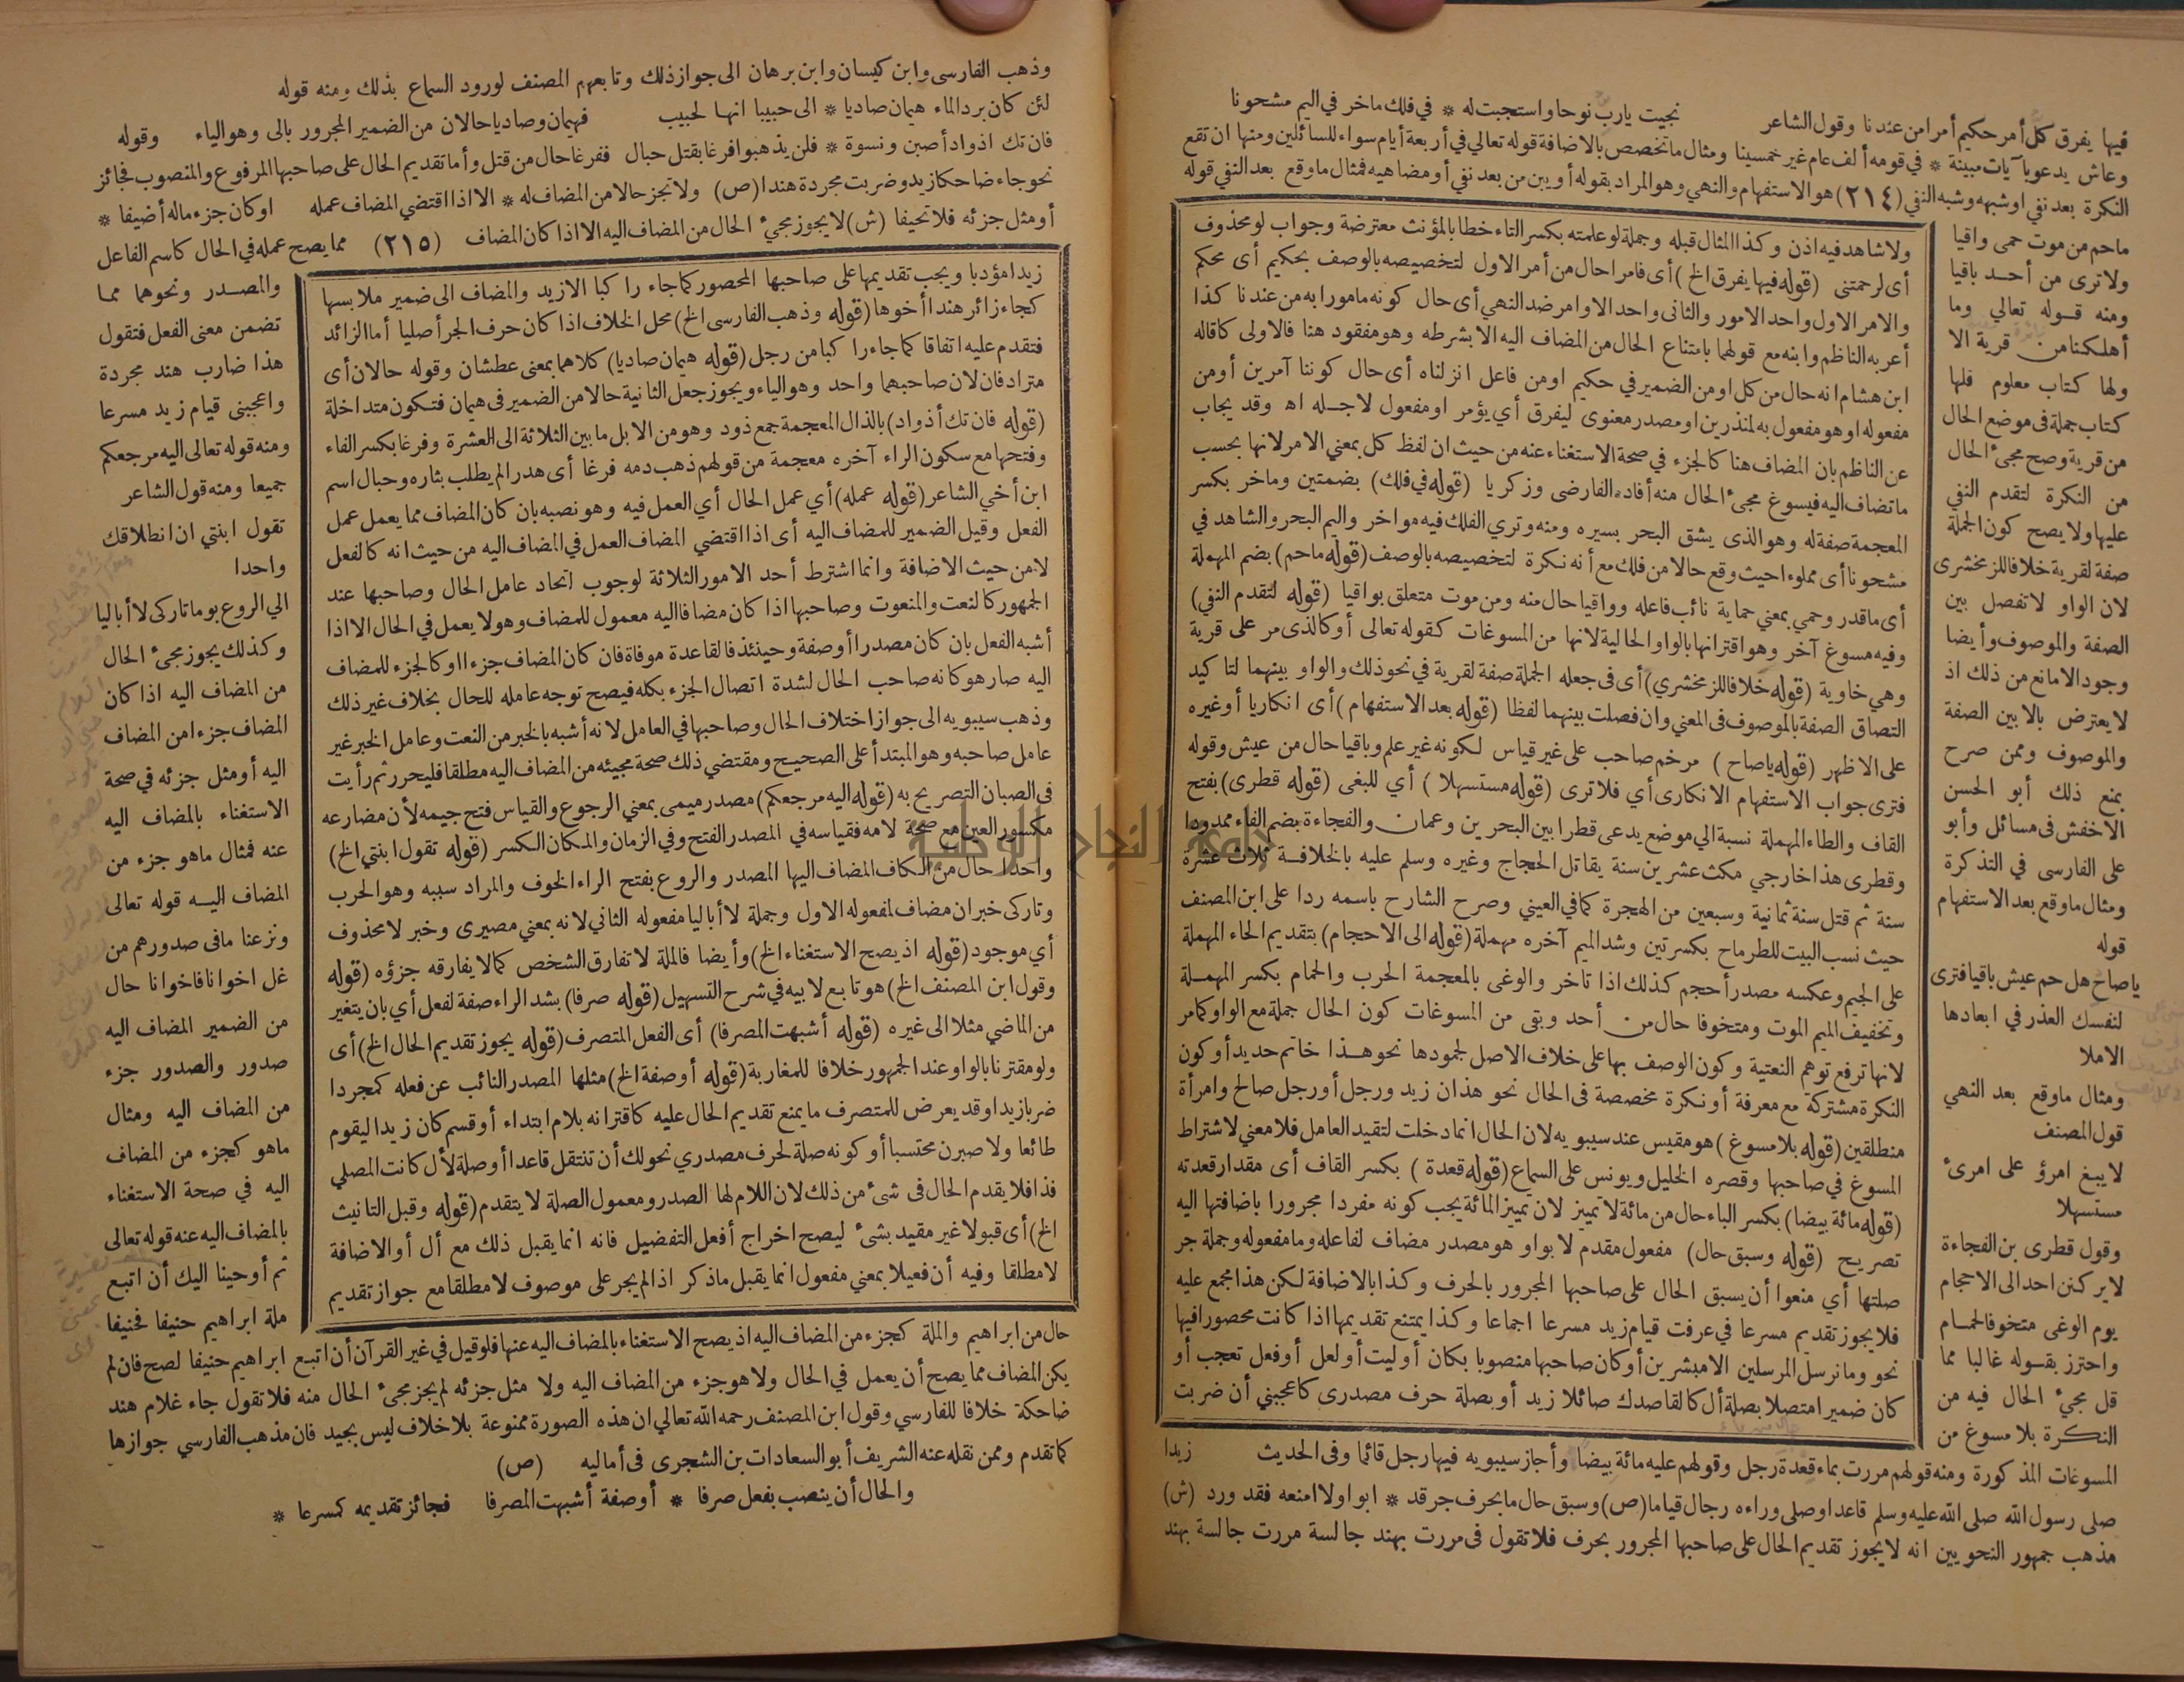 فيها يفرق كل أمر حكيم أمرا من عندنا وقول الشاعر نجيت يارب نوحا واستجبت له * في فلك ماخر في اليم مشحونا
وعاش يدعو بآيات مبينة * في قومه ألف عام غير خمسينا ومثال ما تخصص بالاضافة قوله تعالي في أربعة أيام سواء للسائلين ومنها ان تقع
النكرة بعد نفي اوشبهه وشبه النفي (٢١٤) هو الاستفهام والنهي وهو المراد بقوله أو يبن من بعد نفي أو مضاهيه فمثال ما وقع بعد النفي قوله
ماحم من موت حمى واقيا
ولا ترى من أحد باقيا
ومنه قوله تعالي وما
أهلكنا من قرية الا
ولها كتاب معلوم فلها
كتاب جملة في موضع الحال
من قرية وصح مجىء الحال
من النكرة لتقدم النفي
عليها ولا يصح كون الجملة
صفة لقرية خلافا للزمخشرى
لان الواو لا تفصل بين
الصفة والموصوف وأيضا
وجود الا مانع من ذلك اذ
لا يعترض بالا بين الصفة
والموصوف وممن صرح
بمنع ذلك أبو الحسن
الاخفش في مسائل وأبو
على الفارسى في التذكرة
ومثال ما وقع بعد الاستفهام
قوله
ياصاح هل حم عيش باقيا فترى
لنفسك العذر في ابعادها
الاملا
ومثال ما وقع بعد النهي
قول المصنف
لا يبغ امرؤ على امرئ
مستسهلا
وقول قطرى بن الفجاءة
لا يركنن احد الى الاحجام
يوم الوغى متخوفا لحمام
واحترز بقوله غالبا مما
قل مجيء الحال فيه من
النكرة بلا مسوغ من
ولا شاهد فيه اذن وكذا المثال قبله وجملة لوعلمته بكسر التاء خطابا لمؤنث معترضة وجواب لو محذوف
أى لرحمتنى (قوله فيها يفرق الخ) أى فامرا حال من أمر الاول لتخصيصه بالوصف بحكيم أى محكم
والامر الاول واحد الامور والثانى واحد الاوامر ضد النهي أى حال كونه مامورا به من عندنا كذا
أعربه الناظم وابنه مع قولهما بامتناع الحال من المضاف اليه الا بشرطه وهو مفقود هنا فالاولى كما قاله
ابن هشام انه حال من كل او من الضمير في حكيم او من فاعل انزلناه أى حال كوننا آمرين أو من
مفعوله او هو مفعول به لمنذرين او مصدر معنوى ليفرق أي يؤمر او مفعول لاجله اه وقد يجاب
عن الناظم بان المضاف هنا كالجزء في صحة الاستغناء عنه من حيث ان لفظ كل بمعني الامر لانها بحسب
ما تضاف اليه فيسوغ مجىء الحال منه أفاده الفارضى وزكريا (قوله في فلك) بضمتين وماخر بكسر
المعجمة صفة له وهو الذى يشق البحر بسيره ومنه وتري الفلك فيه مواخر واليم البحر والشاهد في
مشحونا أى مملوءا حيث وقع حالا من فلك مع أنه نكرة لتخصيصه بالوصف (قوله ماحم) بضم المهملة
أى ما قدر وحمي بمعني حماية نائب فاعله وواقيا حال منه ومن موت متعلق بواقيا (قوله لتقدم النفي)
وفيه مسوغ آخر وهو اقترانها بالواو الحالية لانها من المسوغات كقوله تعالى أو كالذى مر على قرية
وهي خاوية (قوله خلافا للزمخشري) أى في جعله الجملة صفة لقرية في نحو ذلك والواو بينهما لتاكيد
التصاق الصفة بالموصوف في المعني وان فصلت بينهما لفظا (قوله بعد الاستفهام) أى انكاريا أو غيره
على الاظهر (قوله ياصاح) مرخم صاحب على غير قياس لكونه غير علم وباقيا حال من عيش وقوله
فترى جواب الاستفهام الانكارى أي فلا ترى (قوله مستسهلا) أي للبغى (قوله قطرى) بفتح
القاف والطاء المهملة نسبة الي موضع يدعى قطرا بين البحرين وعمان والفجاءة بضم الفاء ممدودا
وقطرى هذا خارجي مكث عشرين سنة يقاتل الحجاج وغيره وسلم عليه بالخلافة ثلاث عشرة
سنة ثم قتل سنة ثمانية وسبعين من الهجرة كما في العيني وصرح الشارح باسمه ردا على ابن المصنف
حيث نسب البيت للطرماح بكسرتين وشد الميم آخره مهملة (قوله الى الاحجام) بتقديم الحاء المهملة
على الجيم وعكسه مصدر أحجم كذلك اذا تاخر والوغى بالمعجمة الحرب والحمام بكسر المهملة
وتخفيف الميم الموت ومتخوفا حال من أحد وبقى من المسوغات كون الحال جملة مع الواو كما مر
لانها ترفع توهم النعتية وكون الوصف بها على خلاف الاصل لجمودها نحو هذا خاتم حديد أو كون
النكرة مشتركة مع معرفة أو نكرة مخصصة في الحال نحو هذان زيد ورجل أو رجل صالح وامرأة
منطلقين (قوله بلا مسوغ) هو مقيس عند سيبويه لان الحال انما دخلت لتقيد العامل فلا معني لاشتراط
المسوغ في صاحبها وقصره الخليل ويونس على السماع (قوله قعدة) بكسر القاف أى مقدار قعدته
(قوله مائة بيضا) بكسر الباء حال من مائة لا تمييز لان تمييز المائة يجب كونه مفردا مجرورا باضافتها اليه
تصريح (قوله وسبق حال) مفعول مقدم لابوا وهو مصدر مضاف لفاعله وما مفعوله وجملة جر
صلتها أي منعوا أن يسبق الحال على صاحبها المجرور بالحرف وكذا بالاضافة لكن هذا مجمع عليه
فلا يجوز تقديم مسرعا في عرفت قيام زيد مسرعا اجماعا وكذا يمتنع تقديمها اذا كانت محصورا فيها
نحو وما نرسل المرسلين الا مبشرين أو كان صاحبها منصوبا بكان أو ليت أو لعل أو فعل تعجب أو
كان ضميرا متصلا بصلة أل كالقاصدك صائلا زيد أو بصلة حرف مصدرى كاعجبني أن ضربت
المسوغات المذكورة ومنه قولهم مررت بماء قعدة رجل وقولهم عليه مائة بيضا وأجاز سيبويه فيها رجل قائما وفي الحديث زيدا
صلى رسول الله صلى الله عليه وسلم قاعدا وصلى وراءه رجال قياما (ص) وسبق حال ما بحرف جر قد * ابوا ولا امنعه فقد ورد (ش)
مذهب جمهور النحويين انه لا يجوز تقديم الحال على صاحبها المجرور بحرف فلا تقول في مررت بهند جالسة مررت جالسة بهند
وذهب الفارسى وابن كيسان وابن برهان الى جواز ذلك وتابعهم المصنف لورود السماع بذلك ومنه قوله
لئن كان برد الماء هيمان صاديا * الى حبيبا انها لحبيب فهيمان وصاديا حالان من الضمير المجرور بالى وهو الياء وقوله
فان تك اذواد أصبن ونسوة * فلن يذهبوا فرغا بقتل حبال ففرغا حال من قتل وأما تقديم الحال على صاحبها المرفوع والمنصوب فجائز
نحو جاء ضاحكا زيد وضربت مجردة هندا (ص) ولا تجز حالا من المضاف له * الا اذا اقتضي المضاف عمله او كان جزء ماله أضيفا *
أو مثل جزئه فلا تحيفا (ش) لا يجوز مجيء الحال من المضاف اليه الا اذا كان المضاف (٢١٥) مما يصح عمله في الحال كاسم الفاعل
زيدا مؤدبا ويجب تقديمها على صاحبها المحصور كما جاء را كبا الا زيد والمضاف الى ضمير ملابسها
كجاء زائر هندا أخوها (قوله وذهب الفارسى الخ) محل الخلاف اذا كان حرف الجر أصليا أما الزائد
فتقدم عليه اتفاقا كما جاء را كبا من رجل (قوله هيمان صاديا) كلاهما بمعنى عطشان وقوله حالان أى
مترادفان لان صاحبهما واحد وهو الياء ويجوز جعل الثانية حالا من الضمير في هيمان فتكون متداخلة
(قوله فان تك أذواد) بالذال المعجمة جمع ذود وهو من الابل ما بين الثلاثة الى العشرة وفرغا بكسر الفاء
وفتحها مع سكون الراء آخره معجمة من قولهم ذهب دمه فرغا أى هدرا لم يطلب بثاره وحبال اسم
ابن أخي الشاعر (قوله عمله) أي عمل الحال أي العمل فيه وهو نصبه بان كان المضاف مما يعمل عمل
الفعل وقيل الضمير للمضاف اليه أى اذا اقتضي المضاف العمل في المضاف اليه من حيث انه كالفعل
لا من حيث الاضافة وانما اشترط أحد الامور الثلاثة لوجوب اتحاد عامل الحال وصاحبها عند
الجمهور كالنعت والمنعوت وصاحبها اذا كان مضافا اليه معمول للمضاف وهو لا يعمل في الحال الا اذا
أشبه الفعل بان كان مصدرا أو صفة وحينئذ فالقاعدة موفاة فان كان المضاف جزءا او كالجزء للمضاف
اليه صار هو كانه صاحب الحال لشدة اتصال الجزء بكله فيصح توجه عامله للحال بخلاف غير ذلك
وذهب سيبويه الى جواز اختلاف الحال وصاحبها في العامل لانه أشبه بالخبر من النعت وعامل الخبر غير
عامل صاحبه وهو المبتدأ على الصحيح ومقتضي ذلك صحة مجيئه من المضاف اليه مطلقا فليحرر ثم رأيت
في الصبان التصريح به (قوله اليه مرجعكم) مصدر ميمى بمعني الرجوع والقياس فتح جيمه لأن مضارعه
مكسور العين مع صحة لامه فقياسه في المصدر الفتح وفي الزمان والمكان الكسر (قوله تقول ابنتي الخ)
واحدا حال من الكاف المضاف اليها المصدر والروع بفتح الراء الخوف والمراد سببه وهو الحرب
وتاركى خبر ان مضاف لمفعوله الاول وجملة لا أباليا مفعوله الثاني لانه بمعني مصيرى وخبر لا محذوف
أي موجود (قوله اذ يصح الاستغناء الخ) وأيضا فالملة لا تفارق الشخص كما لا يفارقه جزؤه (قوله
وقول ابن المصنف الخ) هو تابع لابيه في شرح التسهيل (قوله صرفا) بشد الراء صفة لفعل أي بان يتغير
من الماضي مثلا الى غيره (قوله أشبهت المصرفا) أى الفعل المتصرف (قوله يجوز تقديم الحال الخ) أى
ولو مقترنا بالواو عند الجمهور خلافا للمغاربة (قوله أو صفة الخ) مثلها المصدر النائب عن فعله كمجردا
ضربا زيدا وقد يعرض للمتصرف ما يمنع تقديم الحال عليه كاقترانه بلام ابتداء أو قسم كان زيدا ليقوم
طائعا ولا صبرن محتسبا أو كونه صلة لحرف مصدري نحو لك أن تنتقل قاعدا أو صلة لأل كانت المصلي
فذا فلا يقدم الحال في شئ من ذلك لان اللام لها الصدر ومعمول الصلة لا يتقدم (قوله وقبل التانيث
الخ) أى قبولا غير مقيد بشئ ليصح اخراج أفعل التفضيل فانه انما يقبل ذلك مع أل أو الاضافة
لا مطلقا وفيه أن فعيلا بمعني مفعول انما يقبل ماذكر اذا لم يجر على موصوف لا مطلقا مع جواز تقديم
والمصدر ونحوهما مما
تضمن معنى الفعل فتقول
هذا ضارب هند مجردة
واعجبنى قيام زيد مسرعا
ومنه قوله تعالى اليه مرجعكم
جميعا ومنه قول الشاعر
تقول ابنتي ان انطلاقك
واحدا
الي الروع يوما تاركى لا أباليا
وكذلك يجوز مجئ الحال
من المضاف اليه اذا كان
المضاف جزءا من المضاف
اليه أو مثل جزئه في صحة
الاستغناء بالمضاف اليه
عنه فمثال ما هو جزء من
المضاف اليه قوله تعالى
ونزعنا ما في صدورهم من
غل اخوانا فاخوانا حال
من الضمير المضاف اليه
صدور والصدور جزء
من المضاف اليه ومثال
ما هو كجزء من المضاف
اليه في صحة الاستغناء
بالمضاف اليه عنه قوله تعالى
ثم أوحينا اليك أن اتبع
ملة ابراهيم حنيفا فحنيفا
حال من ابراهيم والملة كجزء من المضاف اليه اذ يصح الاستغناء بالمضاف اليه عنها فلو قيل في غير القرآن أن اتبع ابراهيم حنيفا لصح فان لم
يكن المضاف مما يصح أن يعمل في الحال ولا هو جزء من المضاف اليه ولا مثل جزئه لم يجز مجيء الحال منه فلا تقول جاء غلام هند
ضاحكة خلافا للفارسي وقول ابن المصنف رحمه الله تعالي ان هذه الصورة ممنوعة بلا خلاف ليس بجيد فان مذهب الفارسي جوازها
كما تقدم وممن نقله عنه الشريف أبو السعادات بن الشجرى في أماليه (ص)
والحال أن ينصب بفعل صرفا * أو صفة أشبهت المصرفا فجائز تقديمه كمسرعا *
جامعة النجاح الوطنية